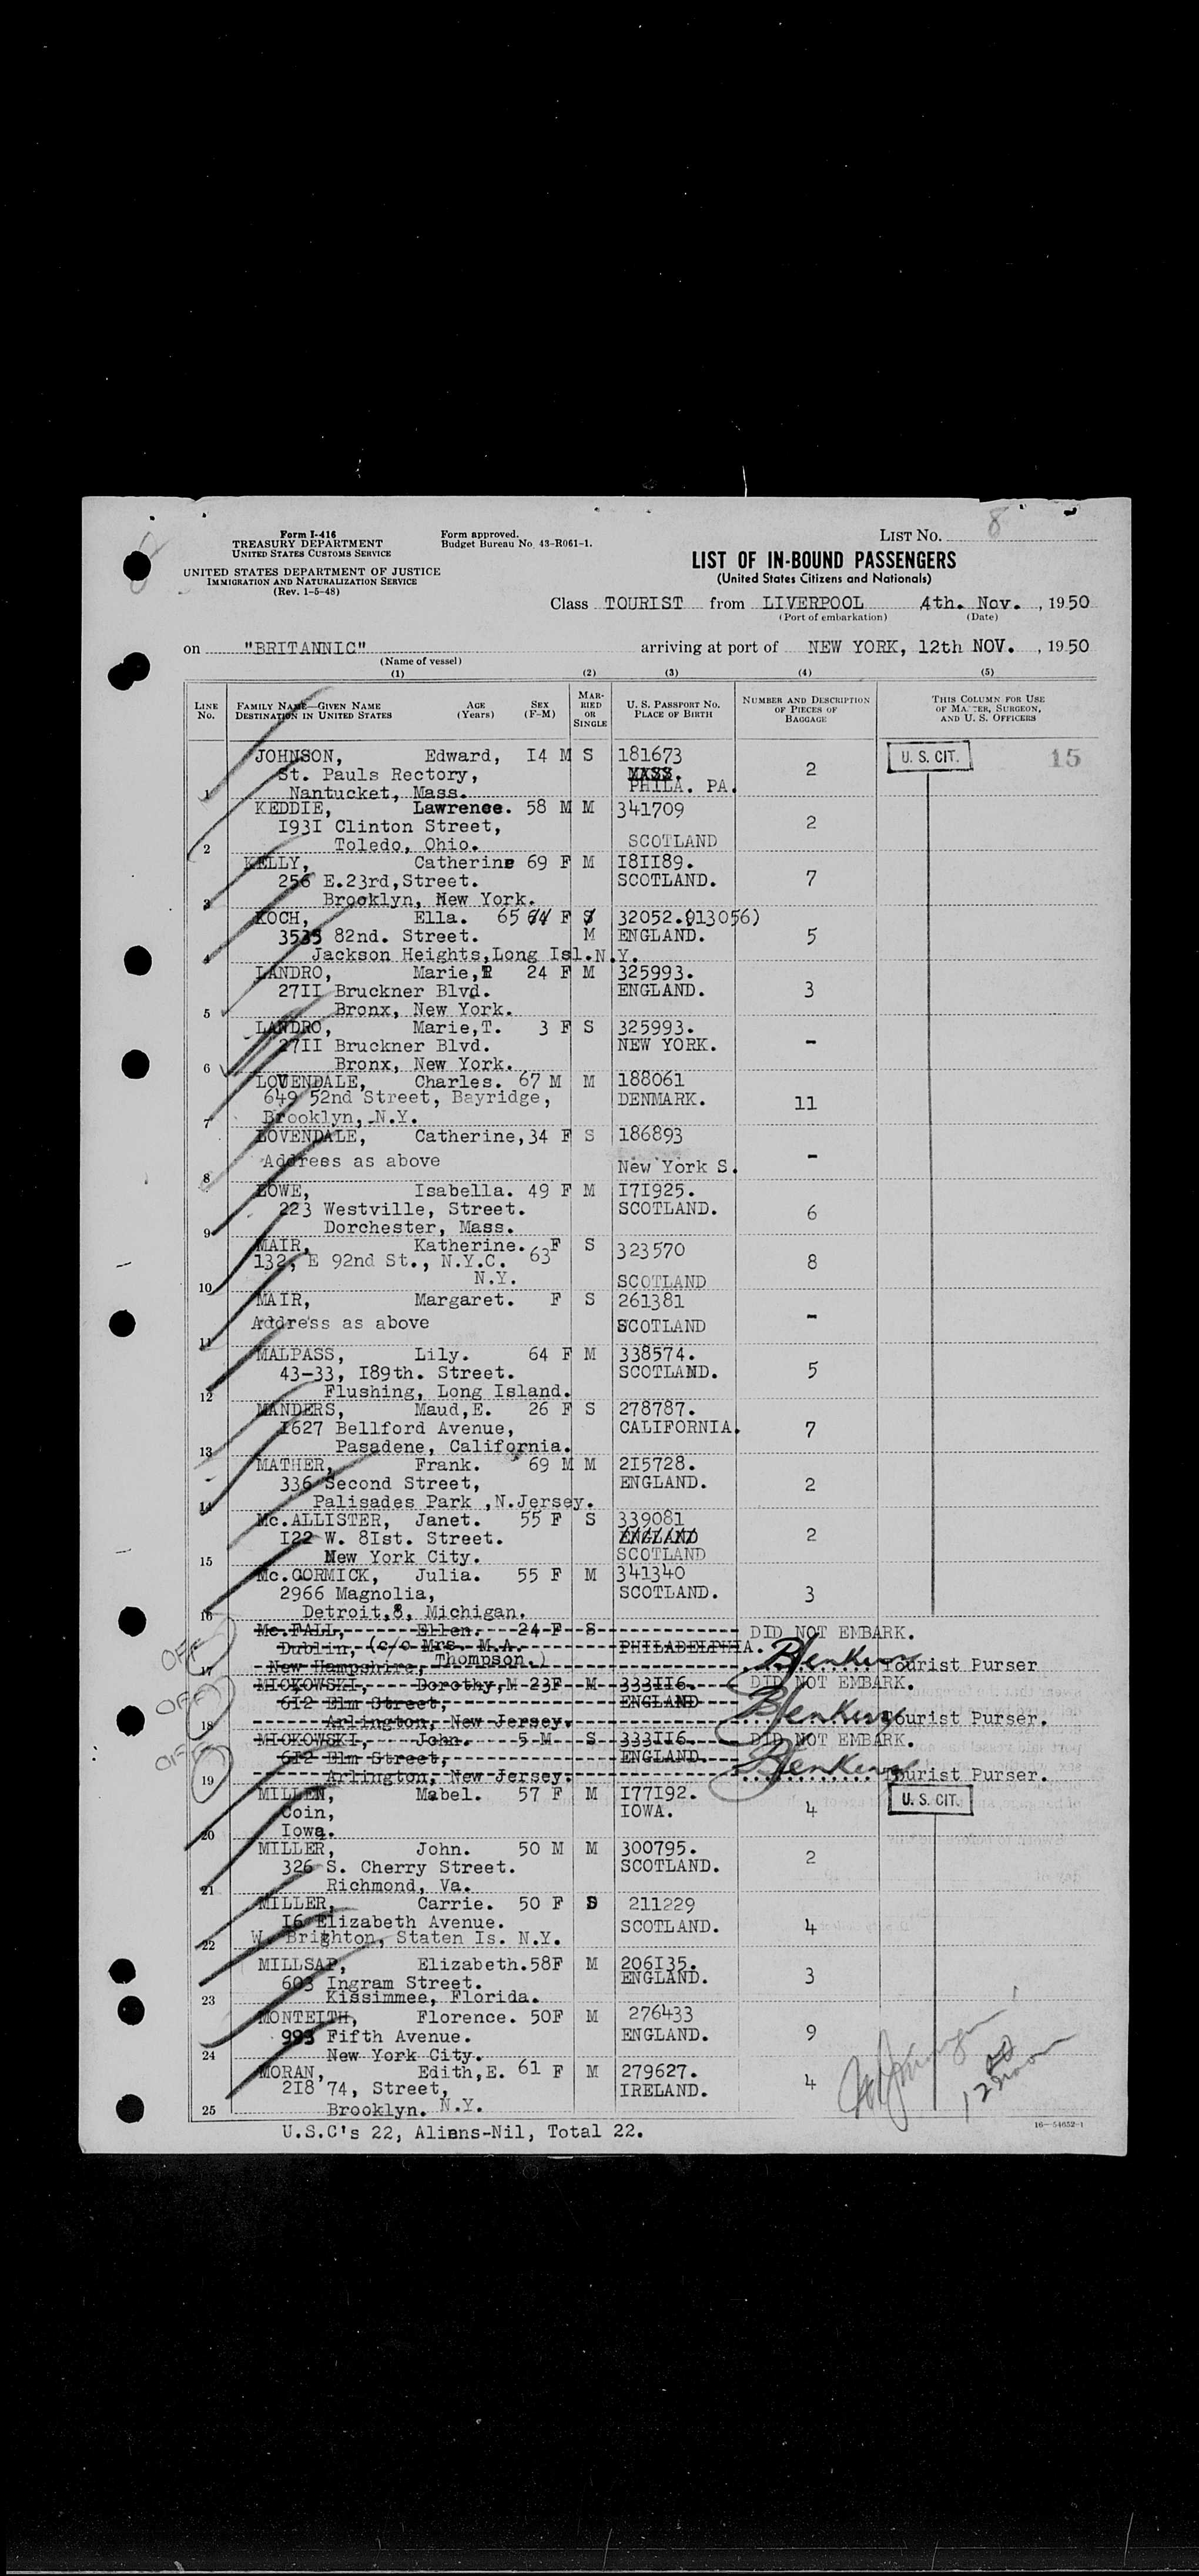 Form I-416
TREASURY DEPARTMENT
UNITED STATES CUSTOMS SERVICE
Form approved.
Budget Bureau No. 43-R061-1.
LIST NO. 8
UNITED STATES DEPARTMENT OF JUSTICE
IMMIGRATION AND NATURALIZATION SERVICE
(Rev. 1-5-48)
LIST OF IN-BOUND PASSENGERS
(United States Citizens and Nationals)
Class TOURIST from LIVERPOOL 4th. Nov. , 1950
(Port of embarkation) (Date)
on "BRITANNIC" arriving at port of NEW YORK, 12th NOV. , 1950
(Name of vessel)
(1) (2) (3) (4) (5)
LINE No. FAMILY NAME—GIVEN NAME DESTINATION IN UNITED STATES AGE (Years) SEX (F-M) MARRIED OR SINGLE U. S. PASSPORT NO. PLACE OF BIRTH NUMBER AND DESCRIPTION OF PIECES OF BAGGAGE THIS COLUMN FOR USE OF MASTER, SURGEON, AND U. S. OFFICERS
JOHNSON, Edward, I4 M S 181673 U. S. CIT. 15
St. Pauls Rectory, MASS. 2
1 Nantucket, Mass. PHILA. PA.
KEDDIE, Lawrence. 58 M M 341709
I93I Clinton Street, 2
2 Toledo, Ohio. SCOTLAND
KELLY, Catherine 69 F M I8II89.
256 E.23rd,Street. SCOTLAND. 7
3 Brooklyn, New York.
KOCH, Ella. 65 64 F S 32052.(13056)
3535 82nd. Street. M ENGLAND. 5
4 Jackson Heights,Long Isl.N.Y.
LANDRO, Marie, 24 F M 325993.
27II Bruckner Blvd. ENGLAND. 3
5 Bronx, New York.
LANDRO, Marie,T. 3 F S 325993.
27II Bruckner Blvd. NEW YORK. -
6 Bronx, New York.
LOVENDALE, Charles. 67 M M 188061
649 52nd Street, Bayridge, DENMARK. 11
7 Brooklyn, N.Y.
LOVENDALE, Catherine, 34 F S 186893
Address as above -
8 New York S.
LOWE, Isabella. 49 F M I7I925.
223 Westville, Street. SCOTLAND. 6
9 Dorchester, Mass.
MAIR, Katherine. 63 F S 323570
132, E 92nd St., N.Y.C. 8
10 N.Y. SCOTLAND
MAIR, Margaret. F S 261381
Address as above SCOTLAND -
11
MALPASS, Lily. 64 F M 338574.
43-33, I89th. Street. SCOTLAND. 5
12 Flushing, Long Island.
MANDERS, Maud,E. 26 F S 278787.
I627 Bellford Avenue, CALIFORNIA. 7
13 Pasadene, California.
MATHER, Frank. 69 M M 2I5728.
336 Second Street, ENGLAND. 2
14 Palisades Park ,N.Jersey.
Mc.ALLISTER, Janet. 55 F S 339081
I22 W. 8Ist. Street. ENGLAND 2
15 New York City. SCOTLAND
Mc.CORMICK, Julia. 55 F M 341340
2966 Magnolia, SCOTLAND. 3
16 Detroit,8, Michigan.
Mc.FALL, Ellen. 24 F S DID NOT EMBARK.
OFF Dublin, (c/o Mrs. M.A. PHILADELPHIA.
17 New Hampshire, Thompson.) BJenkins Tourist Purser
MIOKOWSKI, Dorothy,M 23F M 333II6. DID NOT EMBARK.
OFF 6I2 Elm Street, ENGLAND
18 Arlington, New Jersey. BJenkins Tourist Purser.
MIOKOWSKI, John. 5 M S 333II6. DID NOT EMBARK.
OFF 6I2 Elm Street, ENGLAND.
19 Arlington, New Jersey. BJenkins Tourist Purser.
MILLEN, Mabel. 57 F M I77I92. U. S. CIT.
Coin, IOWA. 4
20 Iowa.
MILLER, John. 50 M M 300795.
326 S. Cherry Street. SCOTLAND. 2
21 Richmond, Va.
MILLER, Carrie. 50 F S 211229
I6 Elizabeth Avenue. SCOTLAND. 4
22 W. Brighton, Staten Is. N.Y.
MILLSAP, Elizabeth.58F M 206I35.
603 Ingram Street. ENGLAND. 3
23 Kissimmee, Florida.
MONTEITH, Florence. 50F M 276433
993 Fifth Avenue. ENGLAND. 9
24 New York City.
MORAN, Edith,E. 61 F M 279627.
2I8 74, Street, IRELAND. 4
25 Brooklyn. N.Y.
U.S.C's 22, Aliens-Nil, Total 22.
16—54652-1